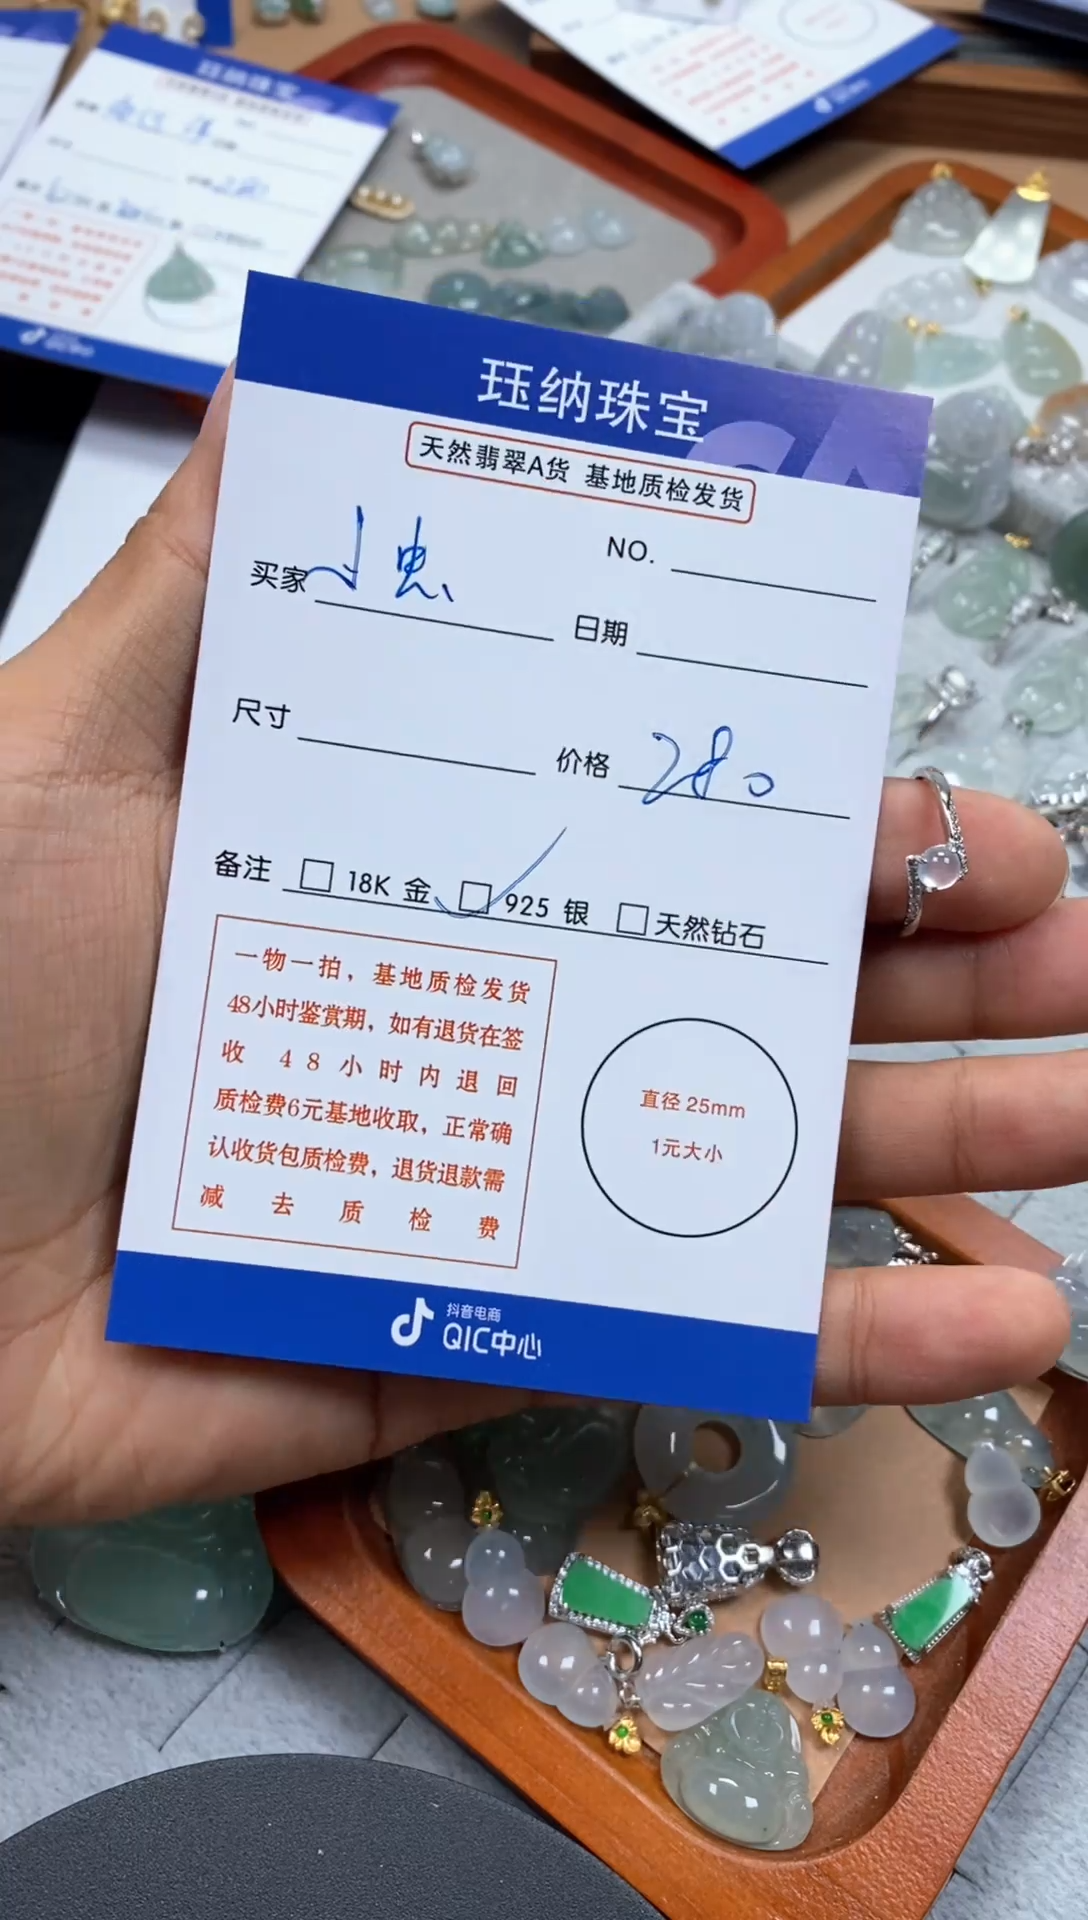 珏纳珠宝
天然翡翠A货 基地质检发货
NO.
买家
日期
尺寸
价格 280
备注 18K 金 925 银 天然钻石
一物一拍，基地质检发货
48小时鉴赏期，如有退货在签
收48小时内退回
质检费6元基地收取，正常确
认收货包质检费，退货退款需
减去质检费
直径 25mm
1元大小
抖音电商
QIC中心
珏纳珠宝
280